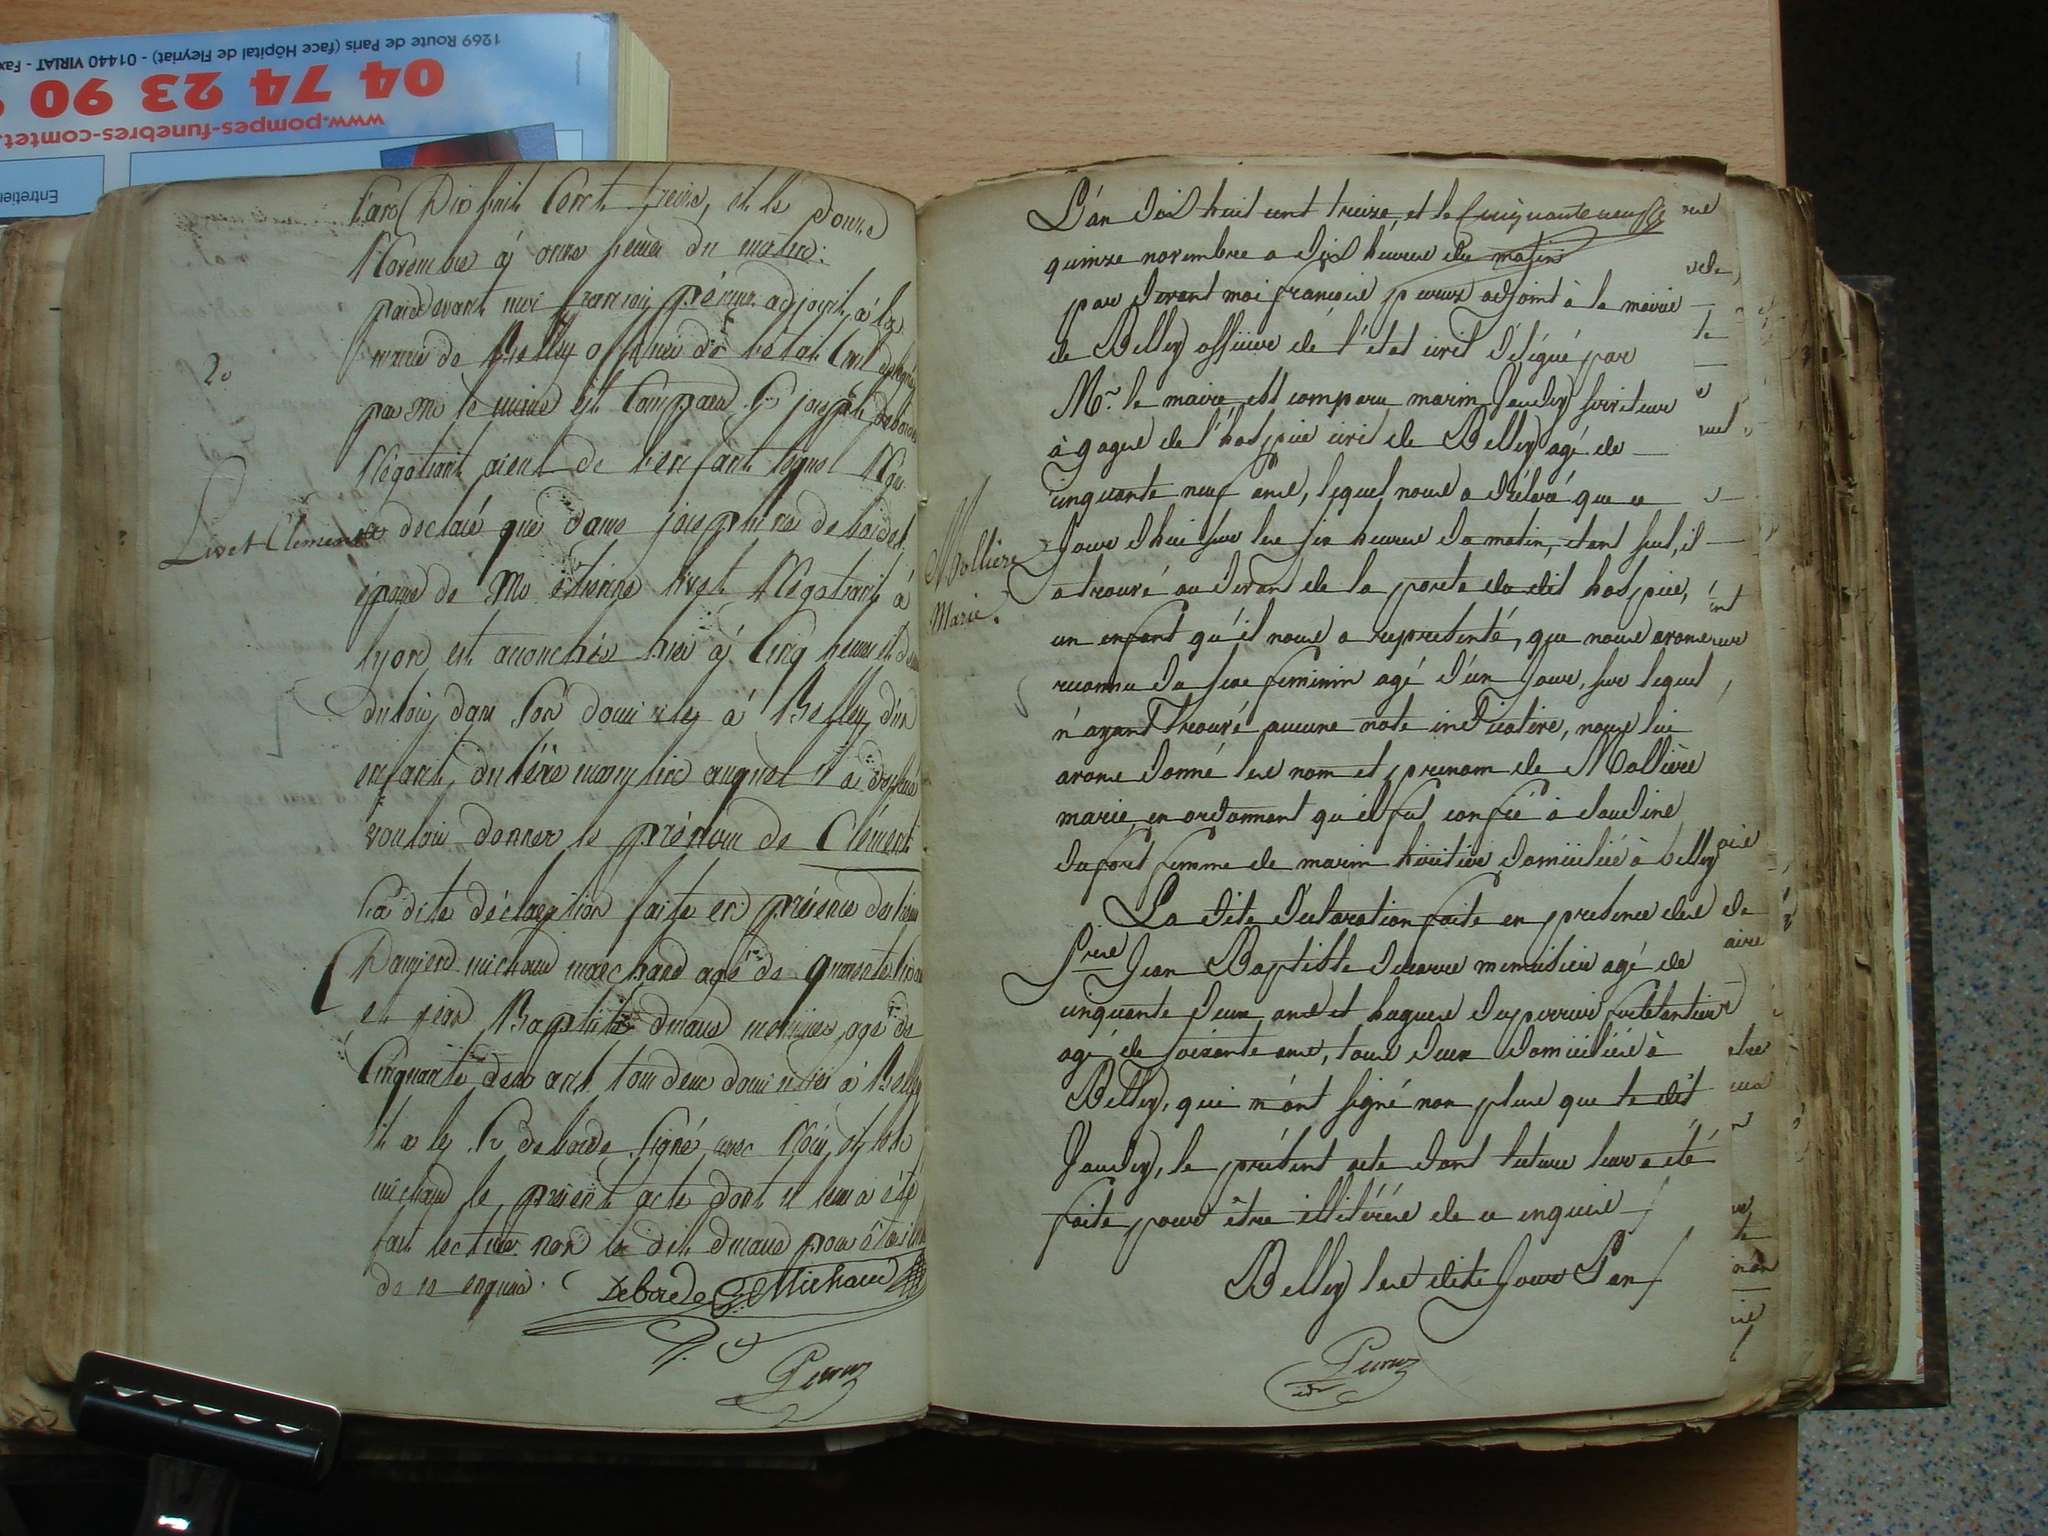 1269 Route de Paris (face Hôpital de Fleyriat) - 01440 VIRIAT - Fax
04 74 23 90
www.pompes-funebres-comtet.
Entretien
L'an Dix huit Cent treize, et le douze
Novembre à onze heures du matin
pardevant moi françois péruz adjoint à la
mairie de Belley officier de l'état Civil délégué
par Mr le maire est Comparu Sr joseph deborde
Négotiant aieul de l'enfant lequel Nous
a déclaré que dame josephine debordes
épouse de Mr étienne livet Négotiant à
lyon est accouchée hier à Cinq heures et demi
du soir, dans son domicile à Belley, d'un
enfant du sexe masculin auquel il a déclaré
vouloir donner le prénom de Clément
La dite déclaration faite en présence des sieurs
michaud marchand agé de quarante trois
et jean Baptiste ducure menuisier agé de
Cinquante deux ans tous deux domiciliés à Belley
Et a le Sr deborde signé avec Nous, et le Sr
michaud le présent acte dont il leur a été
fait lecture non le dit pour être illitéré
de ce enquis.
Deborde Michaud
Peruz
2.
Livet Clément
L'an dix huit cent treize, et le Cinquante neuf
quinze novembre a dix heures du matin
par devant moi françois peruz adjoint à la mairie
de Belley officier de l'état civil délégué par
Mr. le maire est comparu marin Jaudy serviteur
à gages de l'hospice civil de Belley agé de
cinquante neuf ans, lequel nous a déclaré que ce
Jour d'hui sur les six heures du matin, etant seul, il
a trouvé au devant de la porte du dit hospice,
un enfant qu'il nous a representé, que nous avons
reconnu du sexe feminin agé d'un Jour, sur lequel
n'ayant trouvé aucune note indicative, nous lui
avons donné les nom et prenom de Mollière
marie en ordonnant qu'il fut confié à claudine
Dufort femme de marin domiciliée à belley
La dite declaration faite en presence des
Srs Jean Baptiste ducure menuisier agé de
cinquante deux ans et hugues
agé de soixante ans, tous deux domiciliés à
Belley, qui n'ont signé non plus que le dit
Jaudy, le présent acte dont lecture leur a été
faite pour être illitérés de ce enquis
Belley les dits Jour & an
Peruz
Mollière
Marie.